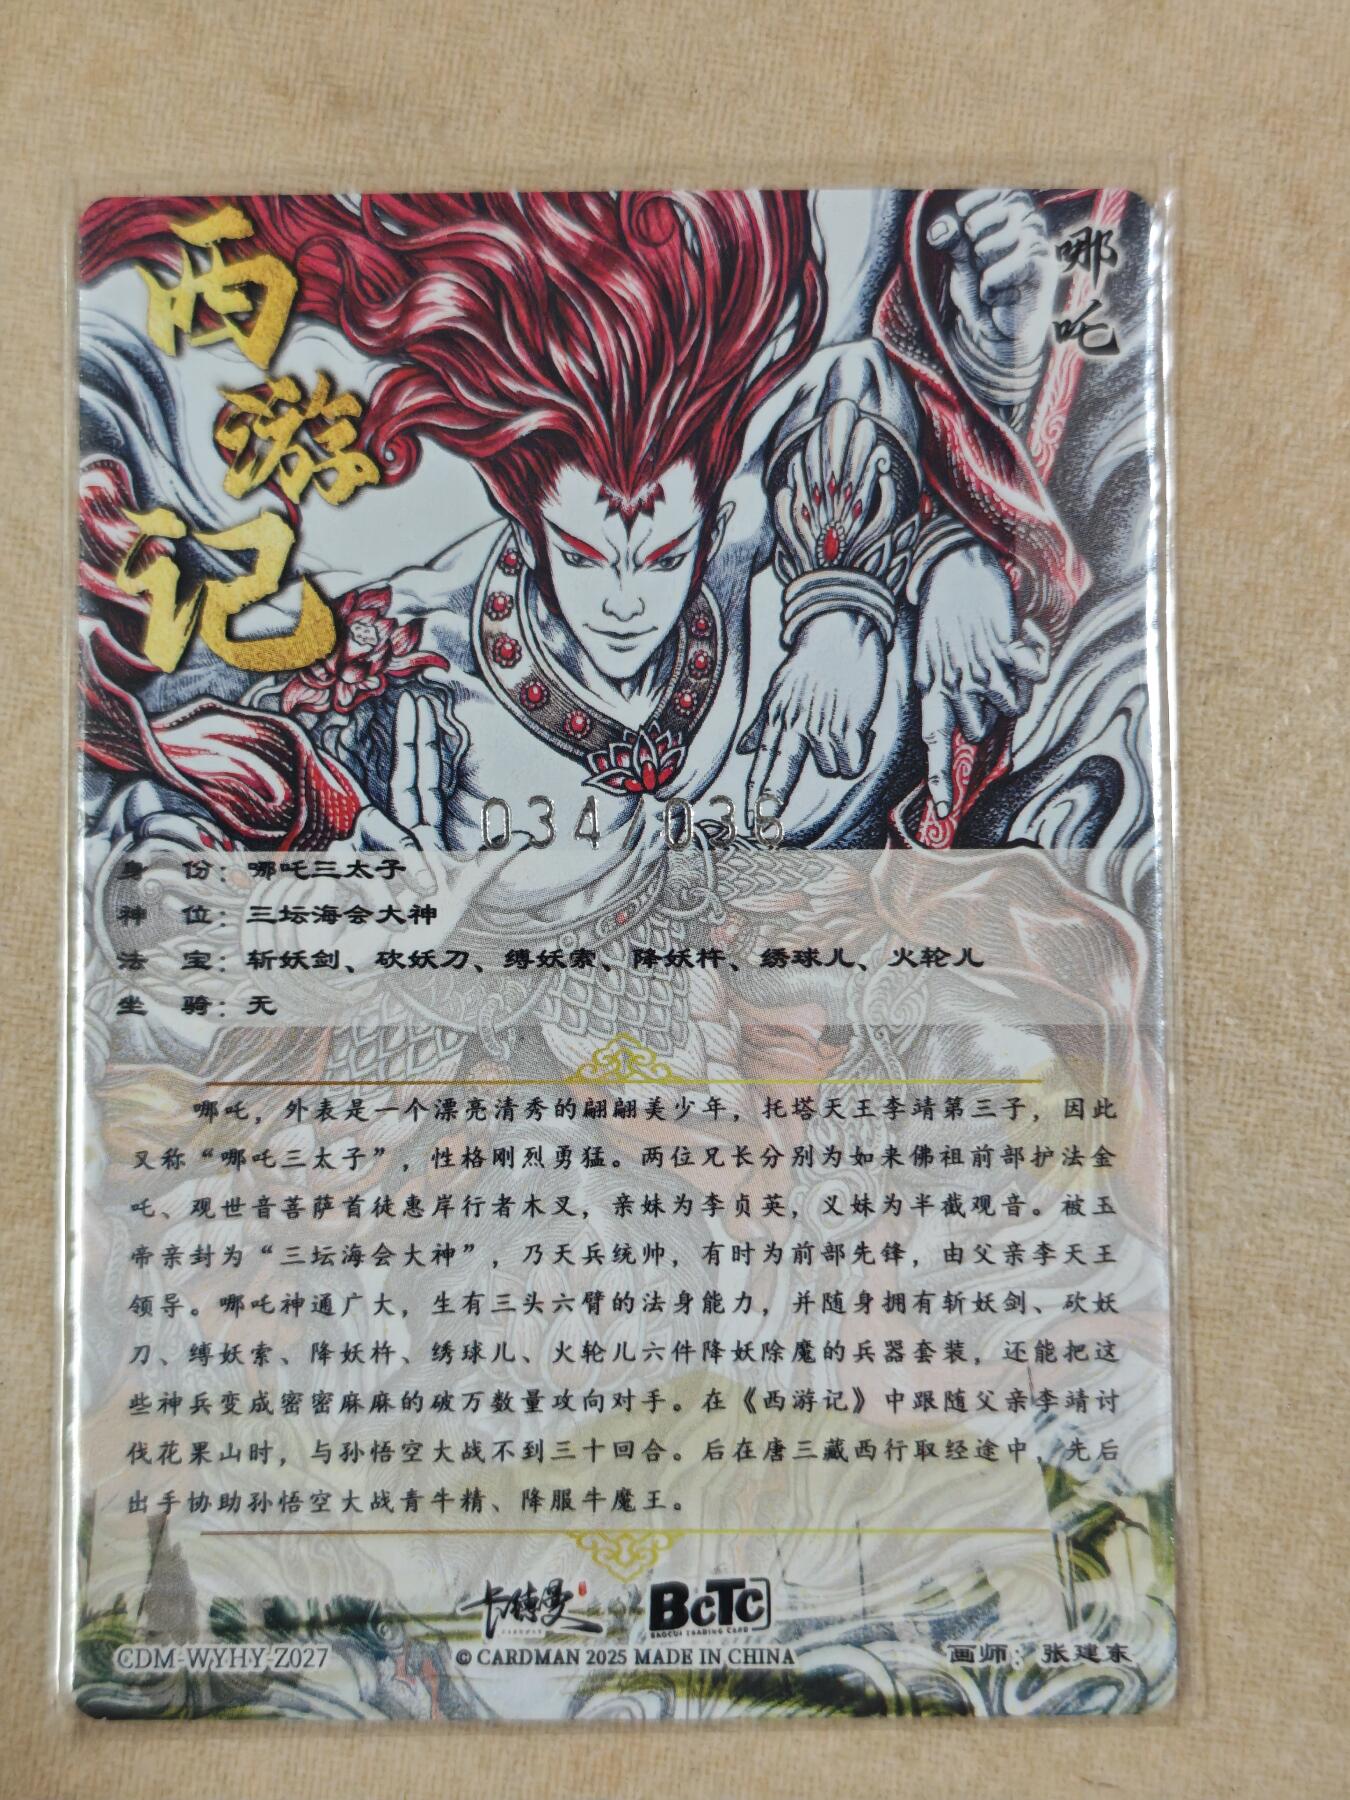 西游记
哪吒
034/036
身 份：哪吒三太子
神 位：三坛海会大神
法 宝：斩妖剑、砍妖刀、缚妖索、降妖杵、绣球儿、火轮儿
坐 骑：无
哪吒，外表是一个漂亮清秀的翩翩美少年，托塔天王李靖第三子，因此
又称“哪吒三太子”，性格刚烈勇猛。两位兄长分别为如来佛祖前部护法金
吒、观世音菩萨首徒惠岸行者木叉，亲妹为李贞英，义妹为半截观音。被玉
帝亲封为“三坛海会大神”，乃天兵统帅，有时为前部先锋，由父亲李天王
领导。哪吒神通广大，生有三头六臂的法身能力，并随身拥有斩妖剑、砍妖
刀、缚妖索、降妖杵、绣球儿、火轮儿六件降妖除魔的兵器套装，还能把这
些神兵变成密密麻麻的破万数量攻向对手。在《西游记》中跟随父亲李靖讨
伐花果山时，与孙悟空大战不到三十回合。后在唐三藏西行取经途中，先后
出手协助孙悟空大战青牛精、降服牛魔王。
卡特曼
BCTC
CDM-WYHY-Z027
© CARDMAN 2025 MADE IN CHINA
画师：张建东